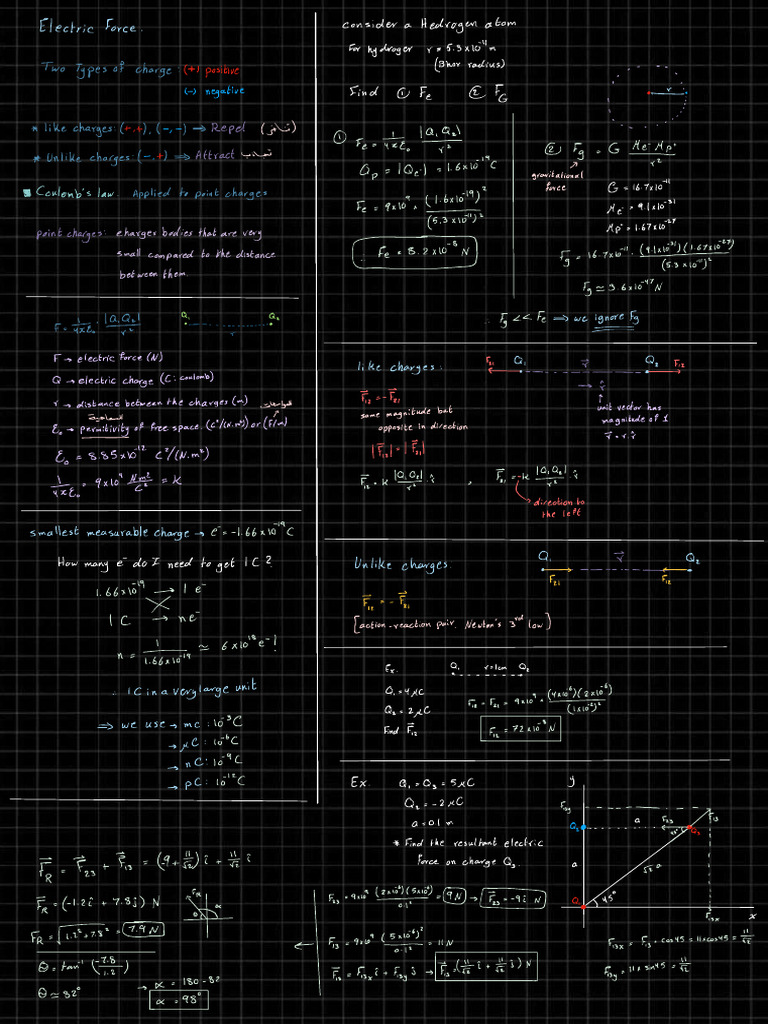 Electric Force.
Two Types of charge: (+) positive
(-) negative
* like charges: (+,+), (-,-) ⇒ Repel (تنافر)
* Unlike charges: (-,+) ⇒ Attract تجاذب
■ Coulomb's law. Applied to point charges
point charges: charges bodies that are very
small compared to the distance
between them.
F = 1/4πε₀ · |Q₁Q₂|/r²
Q₁ r Q₂
F → electric force (N)
Q → electric charge (C: coulomb)
r → distance between the charges (m)
ε₀ → permitivity of free space. (C²/(N.m²)) or (F/m)
ε₀ = 8.85×10⁻¹² C²/(N.m²)
1/4πε₀ = 9×10⁹ Nm²/C² = K
smallest measurable charge → e⁻ = -1.66×10⁻¹⁹ C
How many e⁻ do I need to get 1 C?
1.66×10⁻¹⁹ → 1 e⁻
1 C → n e⁻
n = 1/1.66×10⁻¹⁹ ≃ 6×10¹⁸ e⁻!
∴ 1C in a very large unit
⇒ we use → mc: 10⁻³ C
→ μC: 10⁻⁶ C
→ nC: 10⁻⁹ C
→ pC: 10⁻¹² C
consider a Hedrogen atom
For hydroger r = 5.3×10⁻¹¹ m
(Bhor radius)
r
Find ① Fe ② F_G
① Fe = 1/4πε₀ |Q₁Q₂|/r²
Qp = |Qe⁻| = 1.6×10⁻¹⁹ C
Fe = 9×10⁹ × (1.6×10⁻¹⁹)²/(5.3×10⁻¹¹)²
∴ Fe = 8.2×10⁻⁸ N
② Fg = G Me⁻ Mp⁺/r²
gravitational
force
G = 16.7×10⁻¹¹
Me⁻ = 9.1×10⁻³¹
Mp⁺ = 1.67×10⁻²⁷
Fg = 16.7×10⁻¹¹ · (9.1×10⁻³¹)(1.67×10⁻²⁷)/(5.3×10⁻¹¹)²
Fg ≃ 3.6×10⁻⁴⁷ N
∴ Fg << Fe ⇒ we ignore Fg
like charges:
F₂₁ Q₁ r⃗ Q₂ F₁₂
r̂
unit vector has
magnitude of 1
r⃗ = r.r̂
F⃗₁₂ = -F⃗₂₁
same magnitude but
opposite in direction
|F⃗₁₂| = |F⃗₂₁|
F⃗₁₂ = K |Q₁Q₂|/r² · î , F⃗₂₁ = -K |Q₁Q₂|/r² · î
direction to
the left
Unlike charges:
Q₁ r⃗ Q₂
F₂₁ F₁₂
F⃗₁₂ = - F⃗₂₁
[action-reaction pair. Newton's 3rd low]
Ex. Q₁ r=1cm Q₂
Q₁ = 4 μC
Q₂ = 2 μC
Find F⃗₁₂
F₁₂ = F₂₁ = 9×10⁹ × (4×10⁻⁶)(2×10⁻⁶)/(1×10⁻²)²
F₁₂ = 72×10⁻⁸ N
Ex. Q₁ = Q₃ = 5 μC
Q₂ = -2 μC
a = 0.1 m
* Find the resultant electric
Force on charge Q₃.
y
F₁₃y
F₁₃
Q₂ a F₂₃ Q₃
45°
a √2 a
Q₁ 45°
F₁₃x x
F₂₃ = 9×10⁹ (2×10⁻⁶)(5×10⁻⁶)/0.1² = 9N → F⃗₂₃ = -9î N
F₁₃ = 9×10⁹ (5×10⁻⁶)²/0.1² = 11N
F⃗₁₃ = F₁₃x î + F₁₃y ĵ → F⃗₁₃ = (11/√2 î + 11/√2 ĵ) N
F₁₃x = F₁₃ · cos45 = 11×cos45 = 11/√2
F₁₃y = 11×sin45 = 11/√2
F⃗_R = F⃗₂₃ + F⃗₁₃ = (-9 + 11/√2) î + 11/√2 ĵ
F⃗_R = (-1.2î + 7.8ĵ) N
F_R α θ
F_R = √(1.2² + 7.8²) = 7.9 N
θ = tan⁻¹ (-7.8/1.2)
θ ≃ 82°
→ α = 180 - 82
α = 98°